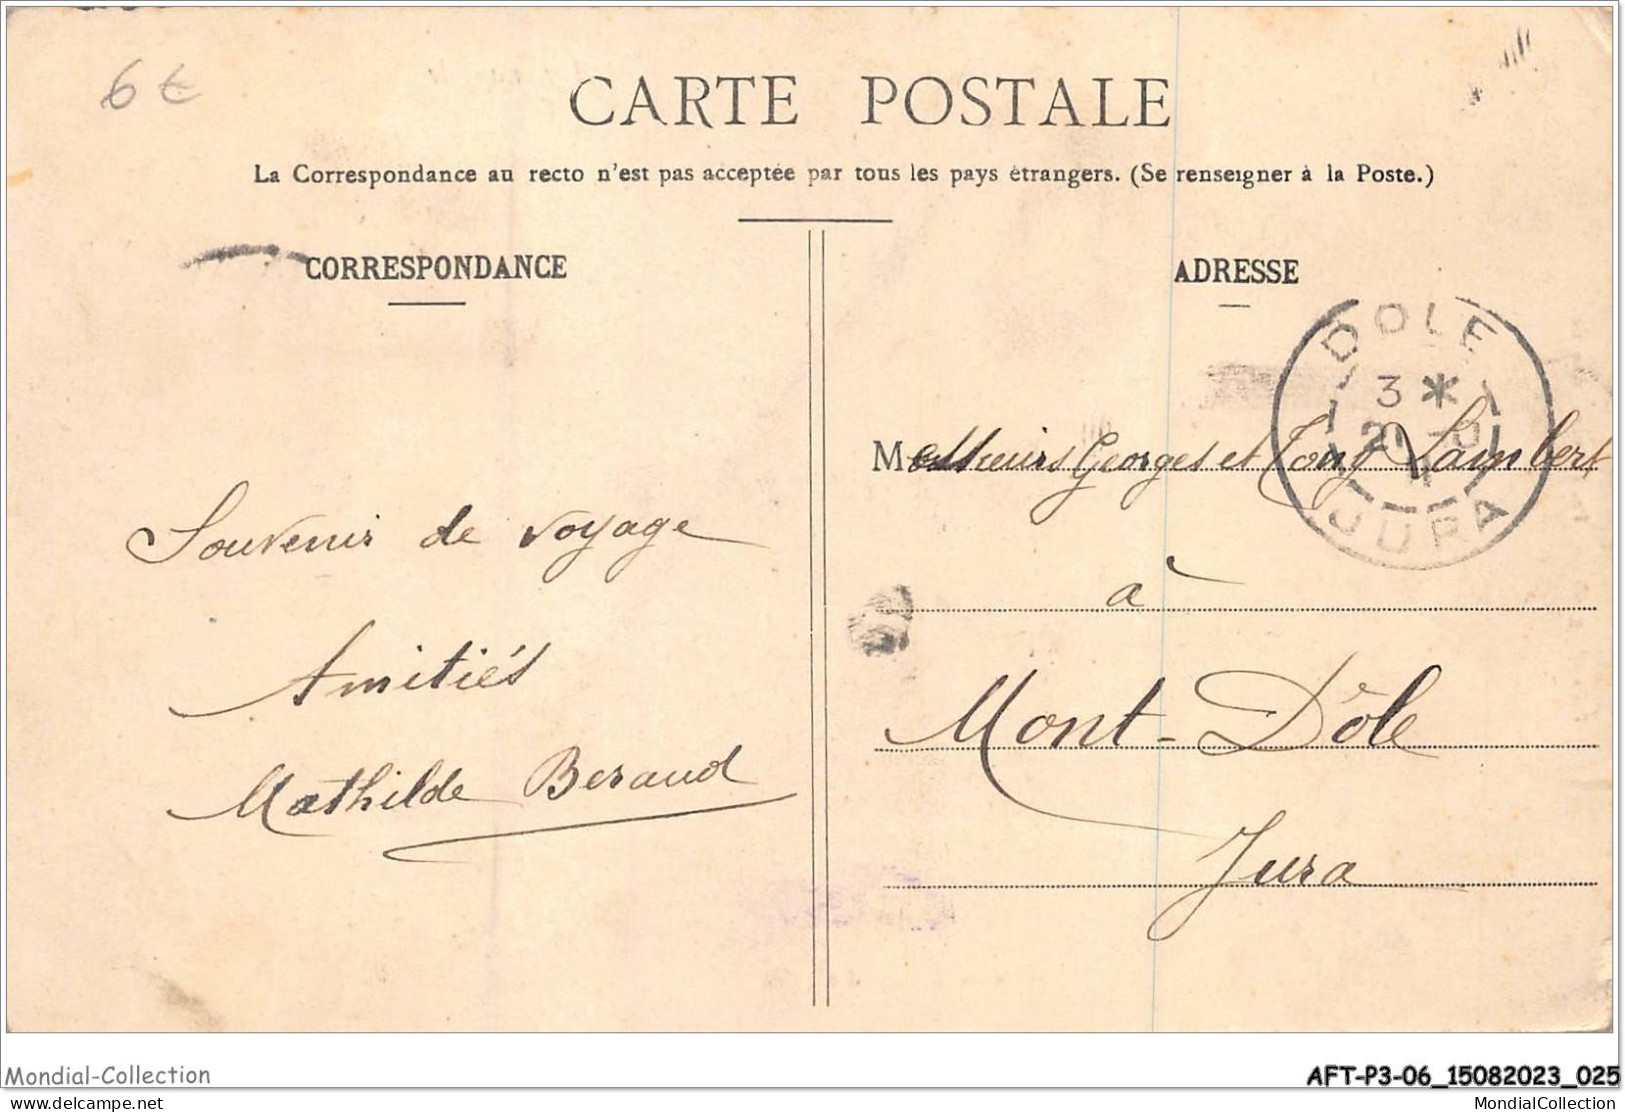 6 €
CARTE POSTALE
La Correspondance au recto n'est pas acceptée par tous les pays étrangers. (Se renseigner à la Poste.)
CORRESPONDANCE
Souvenir de voyage
Amitiés
Mathilde Beraud
ADRESSE
DOLE
3 *
JURA
Messieurs Georges et Tony Lambert
à
Mont-Dôle
Jura
Mondial-Collection
AFT-P3-06_15082023_025
www.delcampe.net
MondialCollection